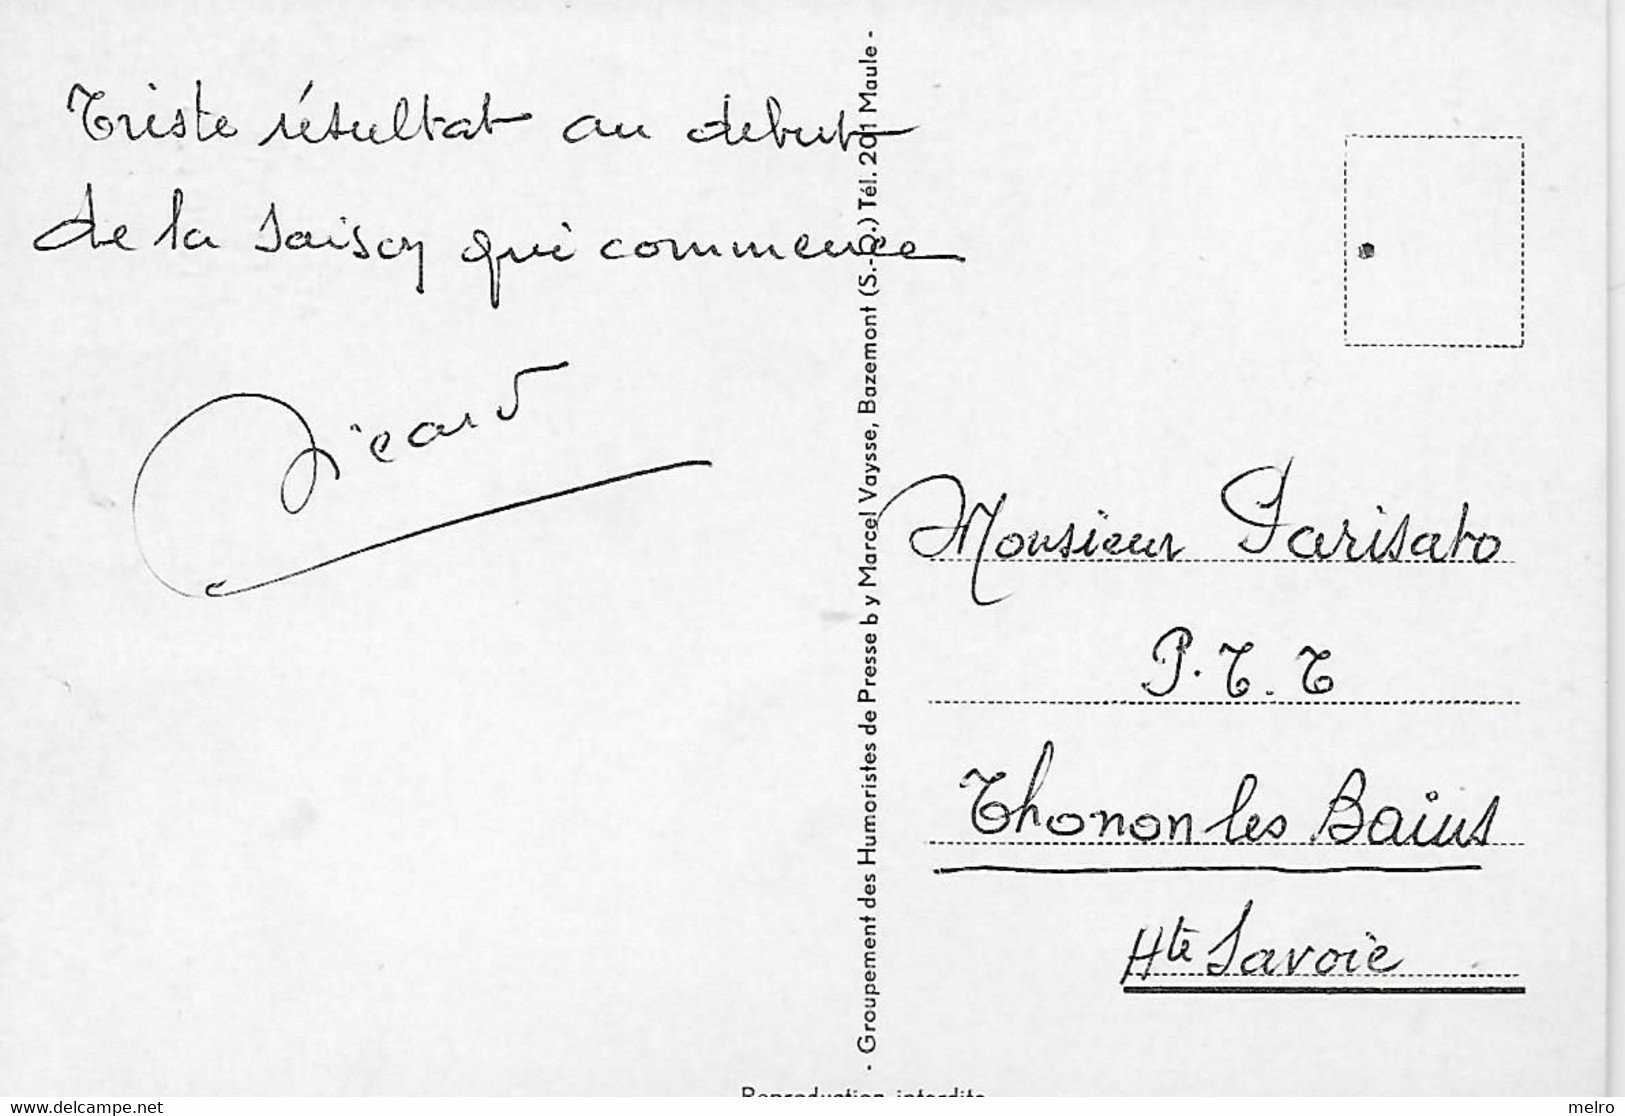 Triste résultat au debut
de la saison qui commence
Picard
- Groupement des Humoristes de Presse b y Marcel Vaysse, Bazemont (S.-&-O.) Tél. 201 Maule -
Monsieur Parisato
P.T.T
Thonon les Bains
Hte Savoie
Reproduction interdite
www.delcampe.net
melro